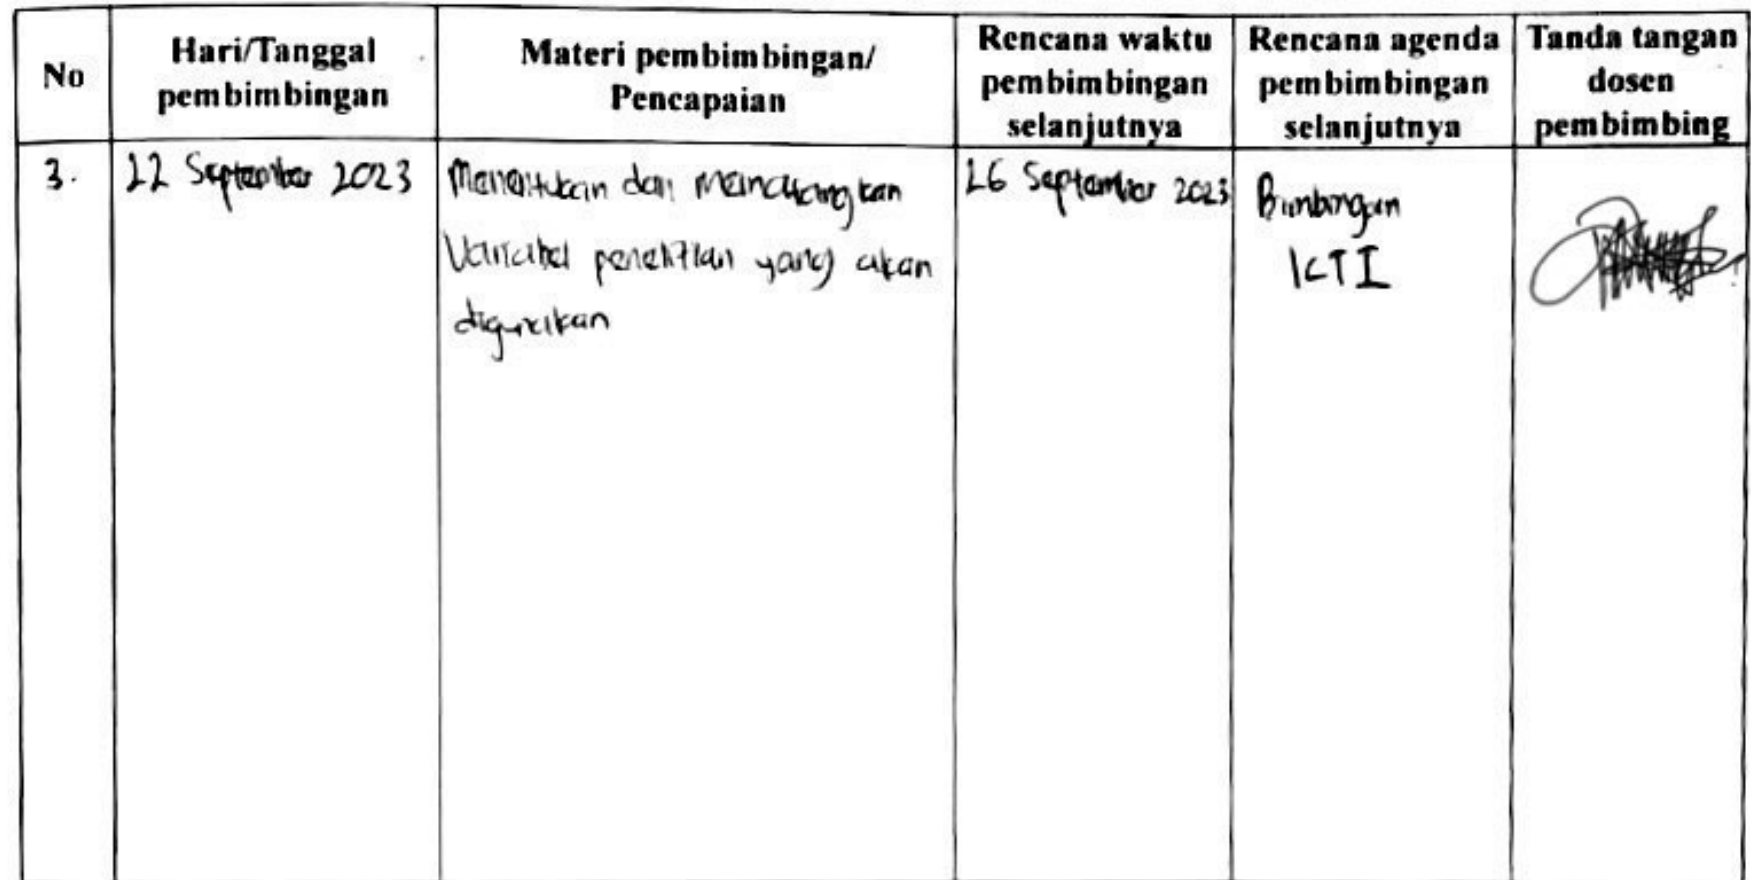 No
Hari/Tanggal
pembimbingan
Materi pembimbingan/
Pencapaian
Rencana waktu
pembimbingan
selanjutnya
Rencana agenda
pembimbingan
selanjutnya
Tanda tangan
dosen
pembimbing
3.
22 September 2023
Menentukan dan
Variabel penelitian yang akan
digunakan
26 September 2023
Bimbingan
KTI